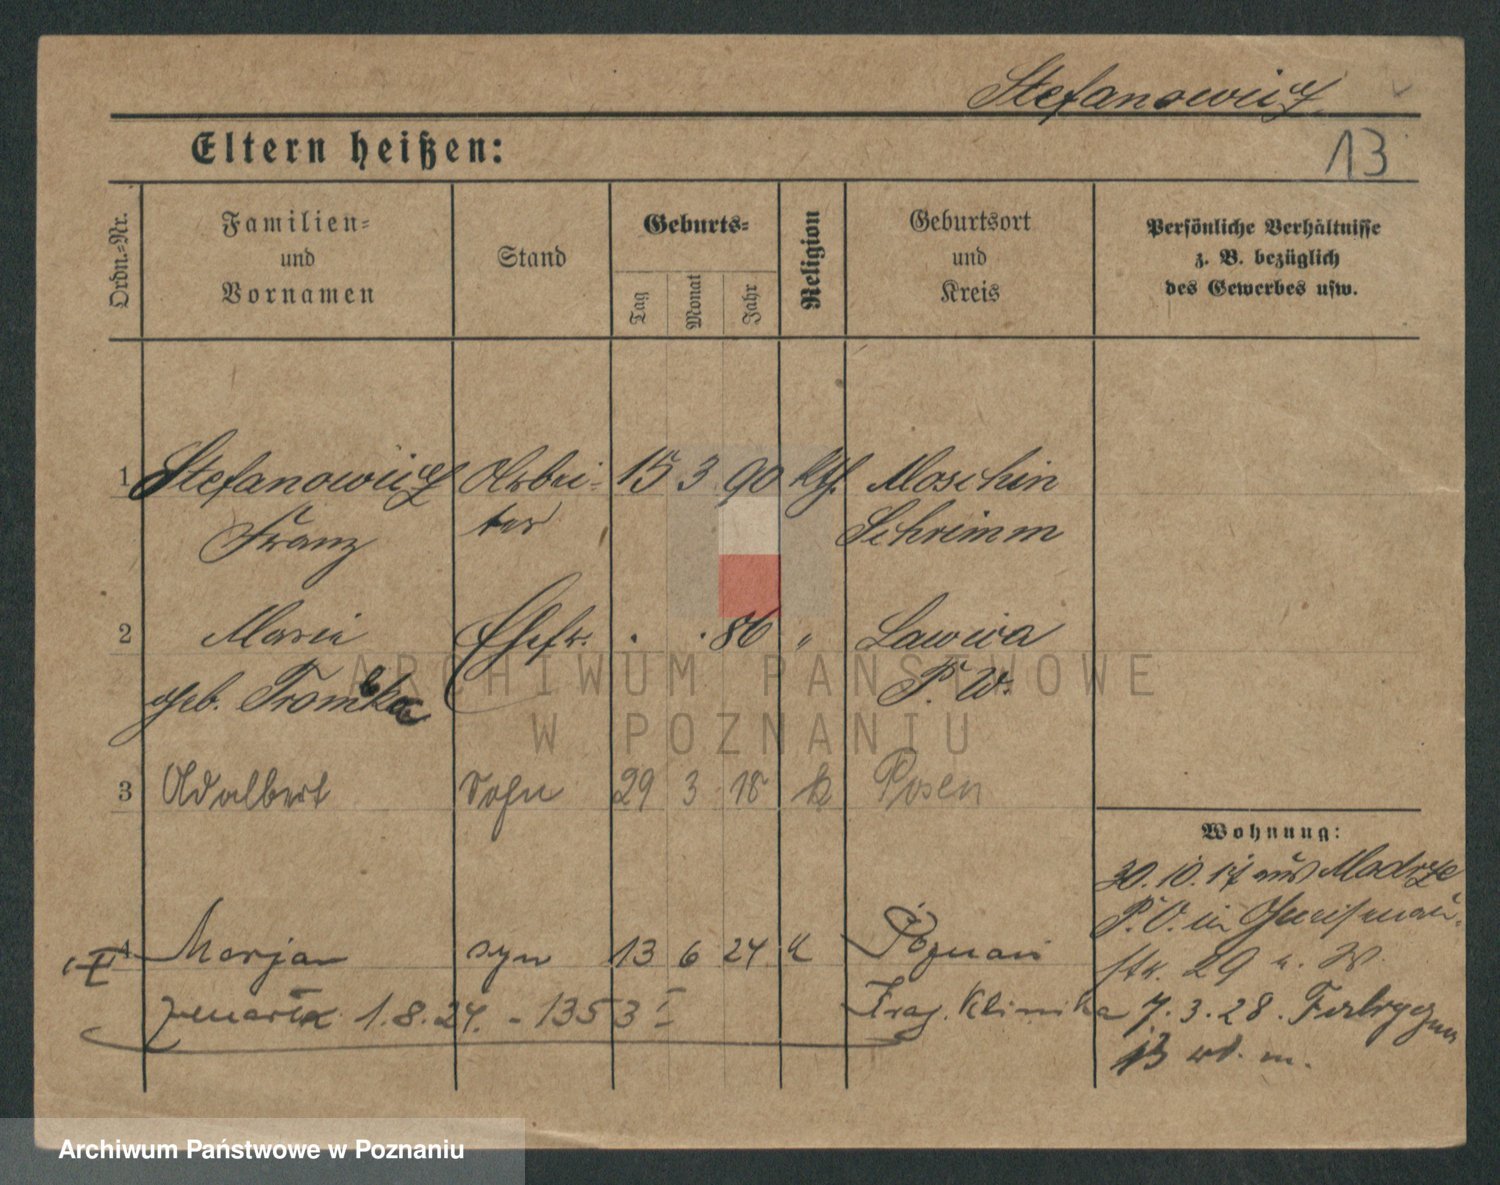 Stefanowicz
13
Eltern heißen:
Ordn.-Nr.
Familien- und Vornamen
Stand
Geburts-
Tag
Monat
Jahr
Religion
Geburtsort und Kreis
Persönliche Verhältnisse z. B. bezüglich des Gewerbes usw.
1 Stefanowicz Arbei- 15 3 90 Kth. Moschin
Franz ter Schrimm
2 Maria Ehefr. . . 86 " Lawica
geb. Trombka P. W.
3 Adalbert Sohn 29 3 18 k Posen
Wohnung:
30.10.17 aus Modrze
P. O. in
str. 29 a. W.
4 Marjan syn 13 6 24 k Poznań
I
zmarła 1.8.24. - 1353 I Frag. Klinika
7.3.28.
13 wd. m.
ARCHIWUM PAŃSTWOWE
W POZNANIU
Archiwum Państwowe w Poznaniu